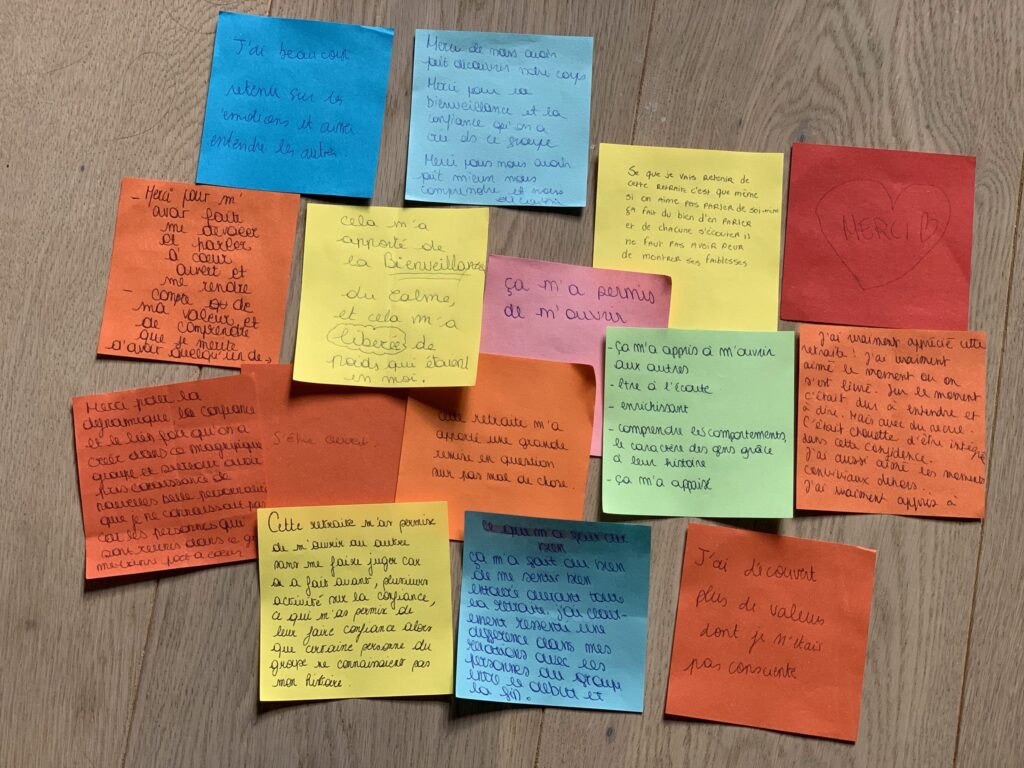 J'ai beaucoup
retenu sur les
émotions et aussi
entendre les autres.
Merci de nous avoir
fait découvrir notre corps
Merci pour la
bienveillance et la
confiance qu'on a
eu ds ce groupe
Merci pous nous avoir
fait mieux nous
comprendre et nous
Se que je vais retenir de
cette retraite c'est que même
si on aime pas parler de soi-même
ça fait du bien d'en parler
et de chacune s'écouter il
ne faut pas avoir peur
de montrer ses faiblesses
MERCI
- Merci pour m'
avoir faite
me dévoiler
et parler
à cœur
ouvert et
me rendre
- compte de
ma valeur et
de comprendre
que je mérite
d'avoir quelqu'un de →
cela m'a
apporté de
la Bienveillance
du calme,
et cela m'a
libérée de
poids qui étaient
en moi.
ça m'a permis
de m'ouvrir
- ça m'a appris à m'ouvrir
aux autres
- être à l'écoute
- enrichissant
- comprendre les comportements,
le caractère des gens grâce
à leur histoire
- ça m'a appaisé
J'ai vraiment apprécié cette
retraite ! J'ai vraiment
aimé le moment ou on
s'est livré. Sur le moment
c'était dur à entendre et
à dire. Mais avec du recul
C'était chouette d'être intégré
dans cette confidence.
J'ai aussi aimé les moments
conviviaux dehors.
J'ai vraiment appris à
Merci pour la
dynamique, la confiance
et le lien fort qu'on a
créé dans ce magnifique
groupe et surtout avoir
plus connaissance de
nouvelles belle personnalité
que je ne connaissait pas
car les personnes qui
sont reunies dans ce
S'être ouvert.
Cette retraite m'a
apporté une grande
remise en question
sur pas mal de chose.
Cette retraite m'as permise
de m'ouvrir au autre
sans me faire juger car
on a fait avant, plusieurs
activité sur la confiance,
ce qui m'as permis de
leur faire confiance alors
que certaine personne du
groupe ne connaissaient pas
mon histoire.
ce qui m'a fait du
bien
ça m'a fait du bien
de me sentir bien
entourée durant toute
la retraite. j'ai claire-
ement ressenti une
différence dans mes
relations avec les
personnes du groupe
entre le début et
la fin.
J'ai découvert
plus de valeurs
dont je n'était
pas consciente